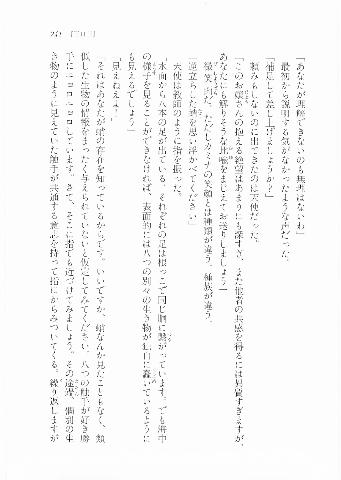 「あなたが理解できないのも無理はないわ」
最初から説明する気がなかったような声だった。
「補足して差し上げましょうか？」
頼みもしないのに出てきたのは天使だった。
「このお嬢さんの抱える絶望はあまりにも深すぎ、また他者の共感を得るには異質すぎますが、
あなたにも解りそうな比喩をまじえてお送りしましょう」
微笑んだ。ただしカミナの笑顔とは種類が違う。種族が違う。
「逆立ちした蛸を思い浮かべてください」
天使は教師のように指を振った。
「水面から八本の足が出ている。それぞれの足は根っこで同じ胴に繋がっています。でも海中
の様子を見ることができなければ、表面的には八つの別々の生き物が独自に蠢いているように
も見えるでしょう」
「見えねえよ！」
「それはあなたが蛸の存在を知っているからです。いいですか、蛸なんか見たこともなく、類
似した生物の情報をまったく与えられていないと仮定してみてください。八つの触手が好き勝
手にニョロニョロしています。さて、そこに指でも近づけてみましょう。その途端、個別の生
き物のように見えていた触手が共通する意志を持って指にからみついてくる。繰り返しますが